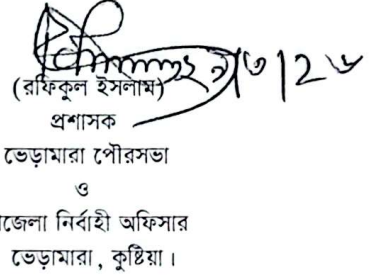 (রফিকুল ইসলাম)
প্রশাসক
ভেড়ামারা পৌরসভা
ও
জেলা নির্বাহী অফিসার
ভেড়ামারা, কুষ্টিয়া।